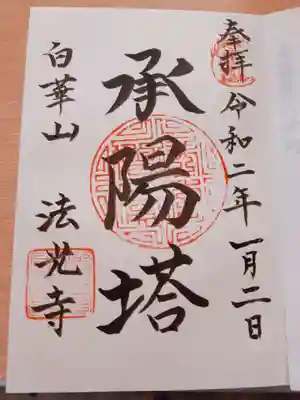 奉拝 令和二年一月二日
承陽塔
白華山 法光寺